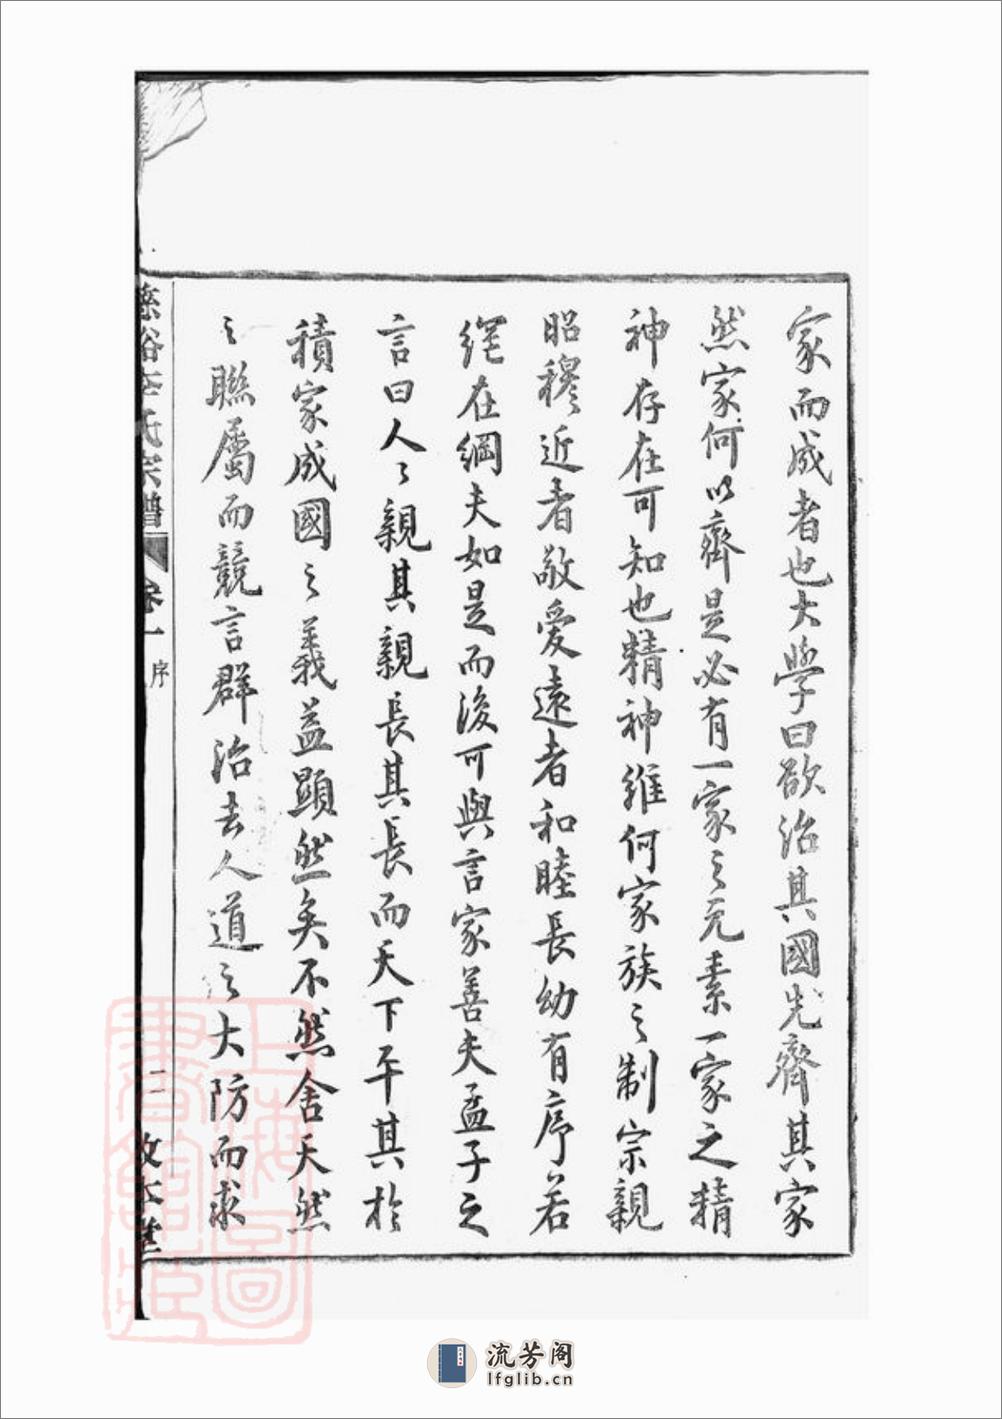 家而成者也大學曰欲治其國先齊其家
然家何以齊是必有一家之元素一家之精
神存在可知也精神維何家族之制宗親
昭穆近者敬愛遠者和睦長幼有序若
綱夫如是而後可與言家善夫孟子之
言曰人々親其親長其長而天下平其於
積家成國之義益顯然矣不然舍天然
之聯屬而競言群治去人道之大防而求
氏宗譜
卷一
序
二
敦本堂
上海圖書館藏
流芳阁
lfglib.cn